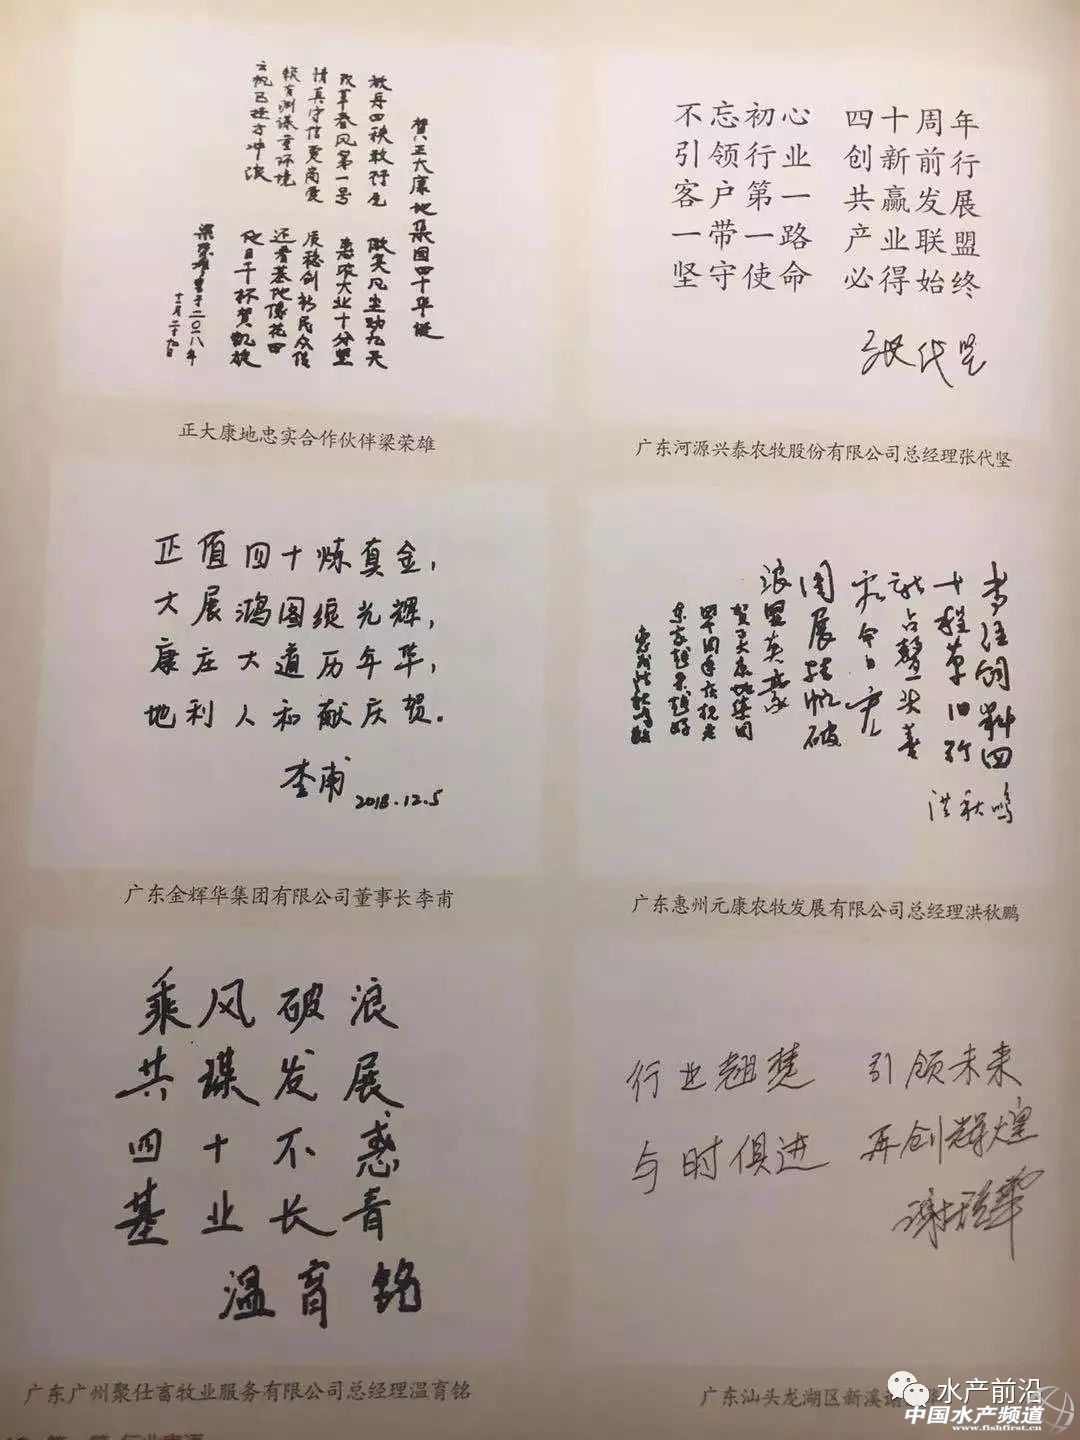 賀正大康地集团四十华诞
改革春风第一号
惠农大业十分坚
情真守信更尚爱
质稳创新民众信
还看基地像花园
云帆已挂方冲浪
他日千杯贺凯旋
梁荣雄书于二〇一八年
十一月二十九日
正大康地忠实合作伙伴梁荣雄
不忘初心 四十周年
引领行业 创新前行
客户第一 共赢发展
一带一路 产业联盟
坚守使命 必得始终
张代坚
广东河源兴泰农牧股份有限公司总经理张代坚
正值四十炼真金，
大展鸿图绽光辉，
康庄大道历年华，
地利人和献庆贺。
李甫
2018.12.5
广东金辉华集团有限公司董事长李甫
图展挂帆破
浪盟英豪
贺正大康地集团
洪秋鸣
广东惠州元康农牧发展有限公司总经理洪秋鹏
乘风破浪
共谋发展
四十不惑
基业长青
温育铭
广东广州聚仕畜牧业服务有限公司总经理温育铭
行业翘楚 引领未来
与时俱进 再创辉煌
广东汕头龙湖区新溪
水产前沿
中国水产频道
www.fishfirst.cn